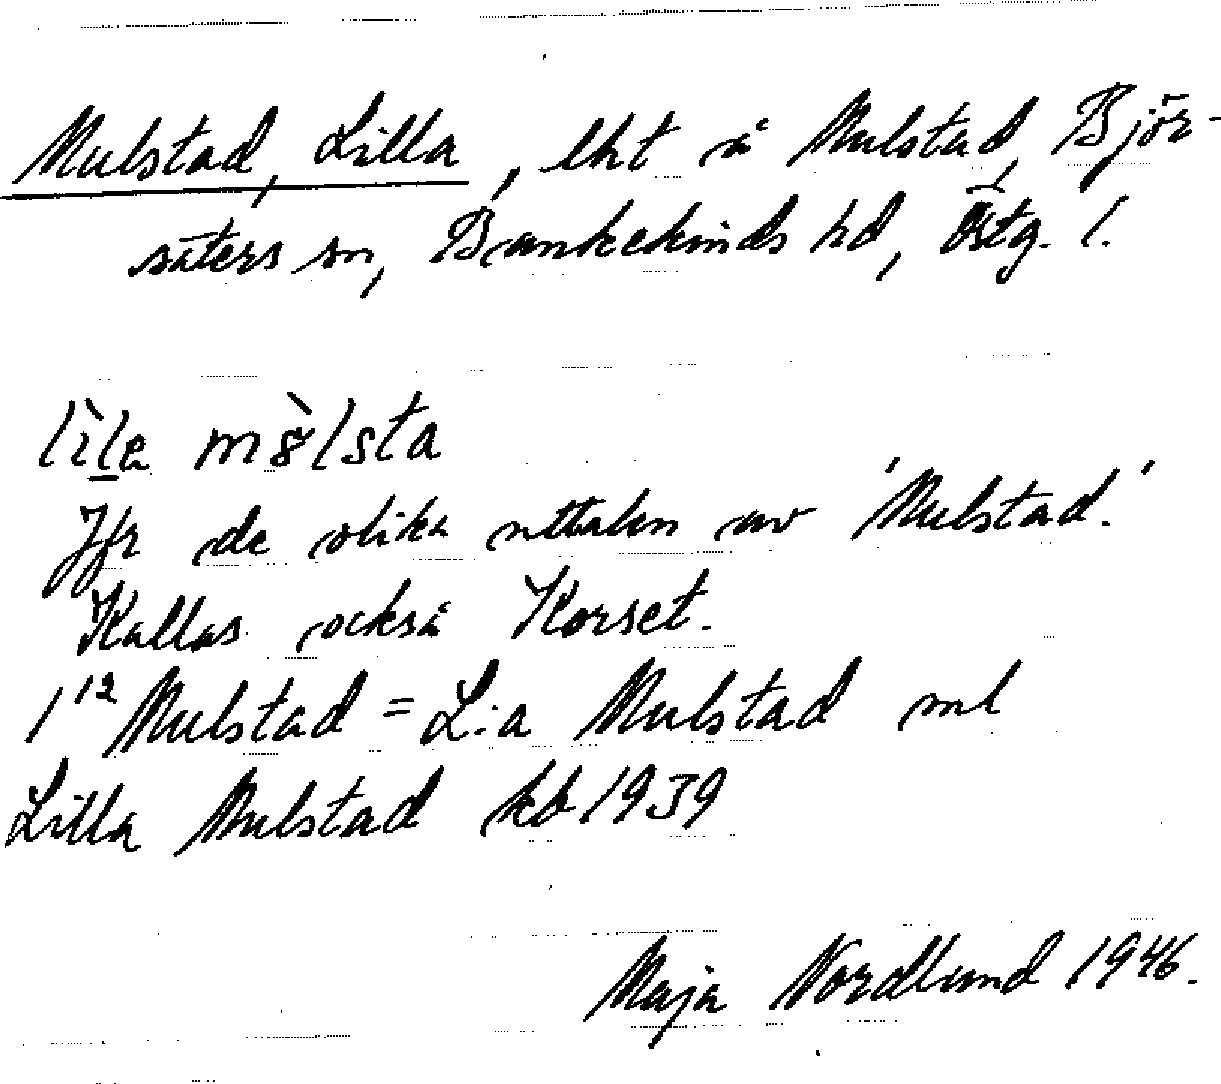 Mulstad, Lilla, lht å Mulstad, Björ-
säters sn, Bankekinds hd, Östg. l.
lìla m8̀lsta
Jfr de olika uttalen av 'Mulstad.'
Kallas också Korset.
1¹² Mulstad = L:a Mulstad ml
Lilla Mulstad kb 1939
Maja Nordlund 1946.